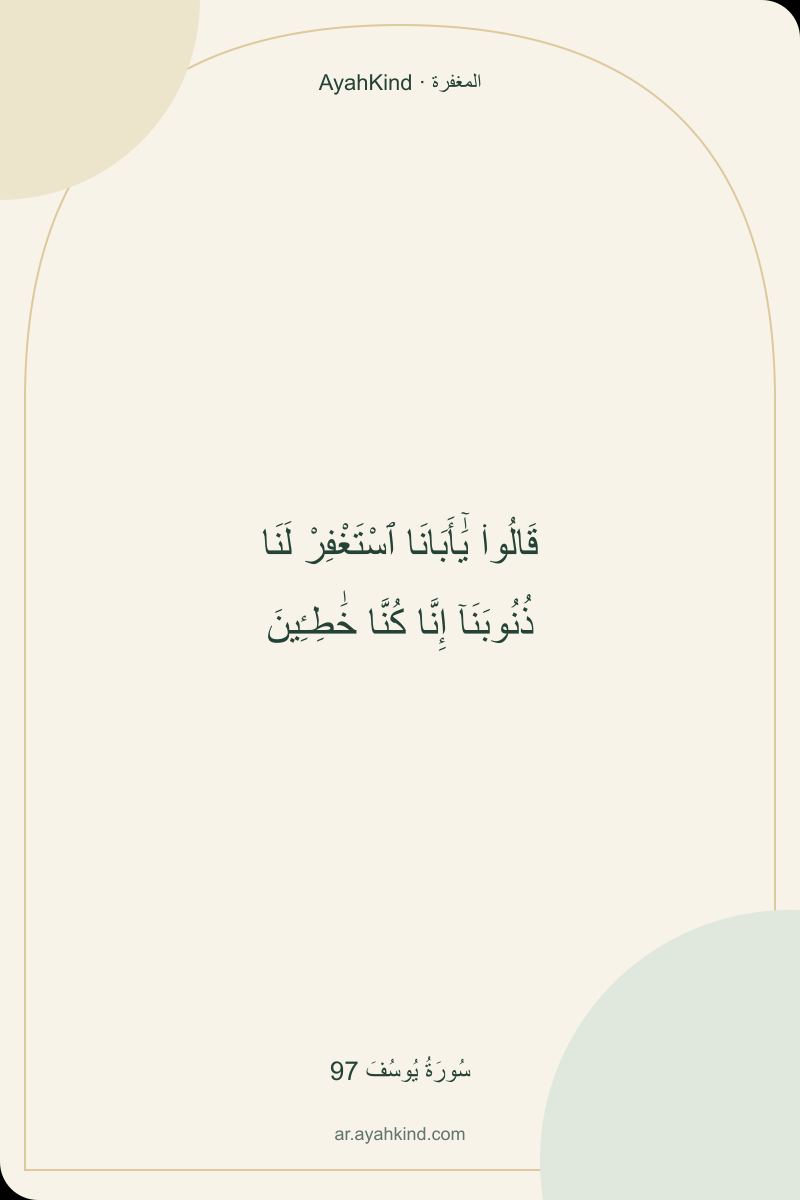 AyahKind · المغفرة
قَالُوا۟ يَٰٓأَبَانَا ٱسْتَغْفِرْ لَنَا
ذُنُوبَنَآ إِنَّا كُنَّا خَٰطِـِٔينَ
سُورَةُ يُوسُفَ 97
ar.ayahkind.com